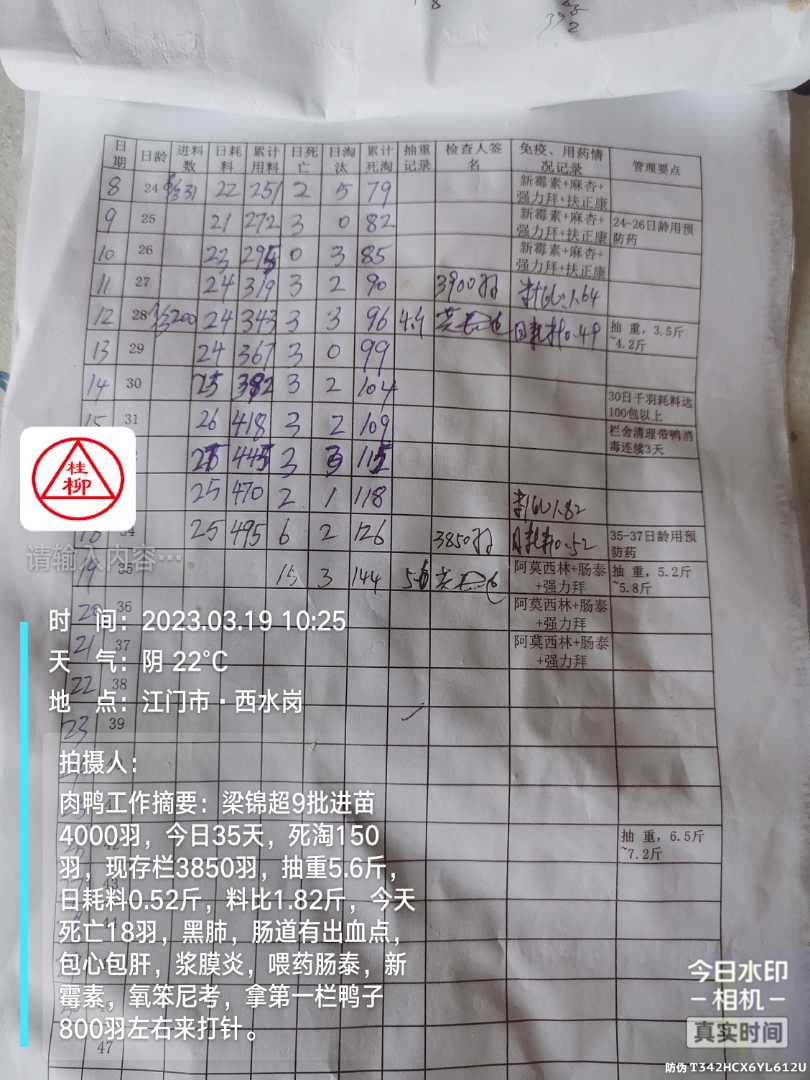 日期 日龄 进料数 日耗料 累计用料 日死亡 日淘汰 累计死淘 抽重记录 检查人签名 免疫、用药情况记录 管理要点
8 24 22 251 2 5 79 新霉素+麻杏+强力拜+扶正康
9 25 21 272 3 0 82 新霉素+麻杏+强力拜+扶正康 24-26日龄用预防药
10 26 23 295 0 3 85 新霉素+麻杏+强力拜+扶正康
11 27 24 319 3 2 90 3900羽 料比1.64
12 28 200 24 343 3 3 96 4.9 日耗料0.49 抽重,3.5斤~4.2斤
13 29 24 367 3 0 99
14 30 25 392 3 2 104 30日千羽耗料达100包以上
15 31 26 418 3 2 109 栏舍清理带鸭消毒连续3天
445 3 3 115
25 470 2 1 118 料比1.82
18 34 25 495 6 2 126 3850羽 日耗料0.52 35-37日龄用预防药
19 35 15 3 144 5.6 阿莫西林+肠泰+强力拜 抽重,5.2斤~5.8斤
20 36 阿莫西林+肠泰+强力拜
21 37 阿莫西林+肠泰+强力拜
22 38
23 39
抽重,6.5斤~7.2斤
47
桂柳
请输入内容…
时 间:2023.03.19 10:25
天 气:阴 22℃
地 点:江门市·西水岗
拍摄人:
肉鸭工作摘要:梁锦超9批进苗
4000羽,今日35天,死淘150
羽,现存栏3850羽,抽重5.6斤,
日耗料0.52斤,料比1.82斤,今天
死亡18羽,黑肺,肠道有出血点,
包心包肝,浆膜炎,喂药肠泰,新
霉素,氧笨尼考,拿第一栏鸭子
800羽左右来打针。
今日水印
相机
真实时间
防伪 T342HCX6YL612U